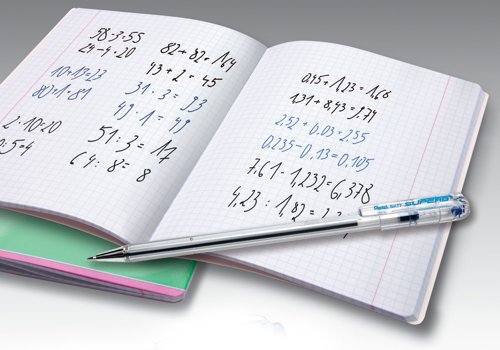 58-3=55
24-4=20
10+13=23
80+1=81
2·10=20
0:5=4
82+82=164
43+2=45
31·3=93
49·1=49
51:3=17
64:8=8
0,45+1,23=1,68
1,31+8,43=9,74
2,52+0,03=2,55
0,235-0,13=0,105
7,61-1,232=6,378
4,23:1,82=2,
Pentel BK77 SUPERB